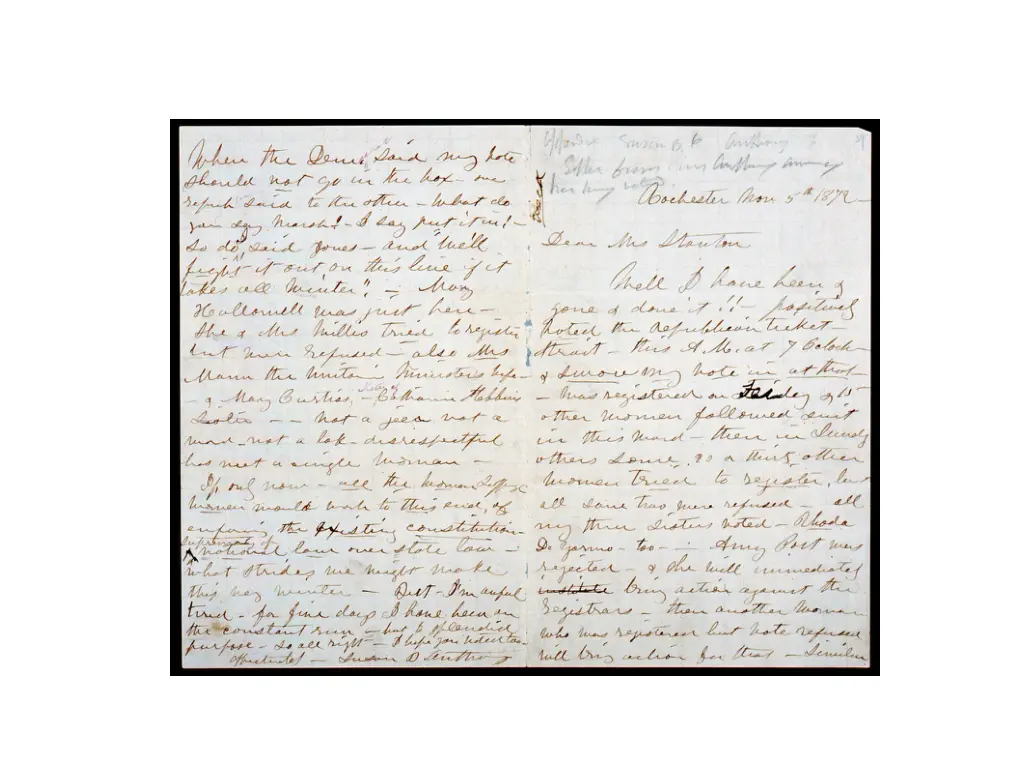 When the Demo. said my vote
should not go in the box - one
repub said to the other - What do
you say Marsh? - I say put it in! -
So do I, said Jones - and "We'll
fight it out on this line if it
takes all Winter" - Mary
Hallowell was just here -
She & Mrs Willis tried to register
but were refused - also Mrs
Mann the Unitarian Ministers wife
- & Mary Curtiss, - Catharine Stebbins
Sister - - not a jeer not a
word - not a look - disrespectful
has met a single woman -
If only now - all the Woman Suffrage
Women would work to this end, of
enforcing the existing constitution -
supremacy of
national law over state law -
what strides we might make
this winter - But - I'm awful
tired - for five days I have been on
the constant run - but to splendid
purpose - So all right - I hope you voted too
Affectionately - Susan B Anthony
Susan B. Anthony
from Anthony
her vote
Rochester Nov 5th 1872 -
Dear Mrs Stanton
Well I have been &
gone & done it!! - positively
voted the Republican ticket -
Strait - this A.M. at 7 Oclock -
& swore my vote in at that -
- Was registered on Friday & 15
other women followed suit
in this ward - then in Sundry
others some 20 or thirty other
women tried to register, but
all save two were refused - all
my three sisters voted - Rhoda
De Garmo - too - Amy Post was
rejected - & she will immediately
bring action against the
Registrars - then another woman
who was registered but vote refused
will bring action for that - Similar